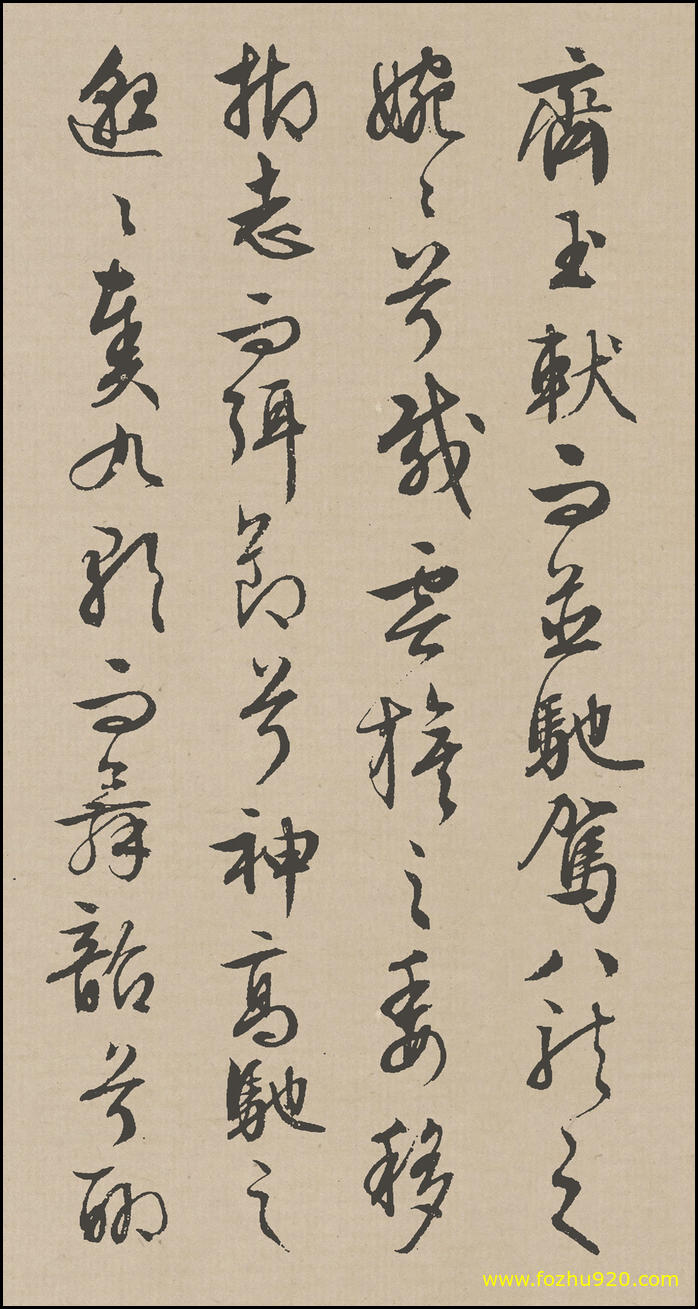 齊玉軑而並馳駕八龍之
婉〻兮載雲旗之委移
抑志而弭節兮神高馳之
邈〻奏九歌而舞韶兮聊
www.fozhu920.com